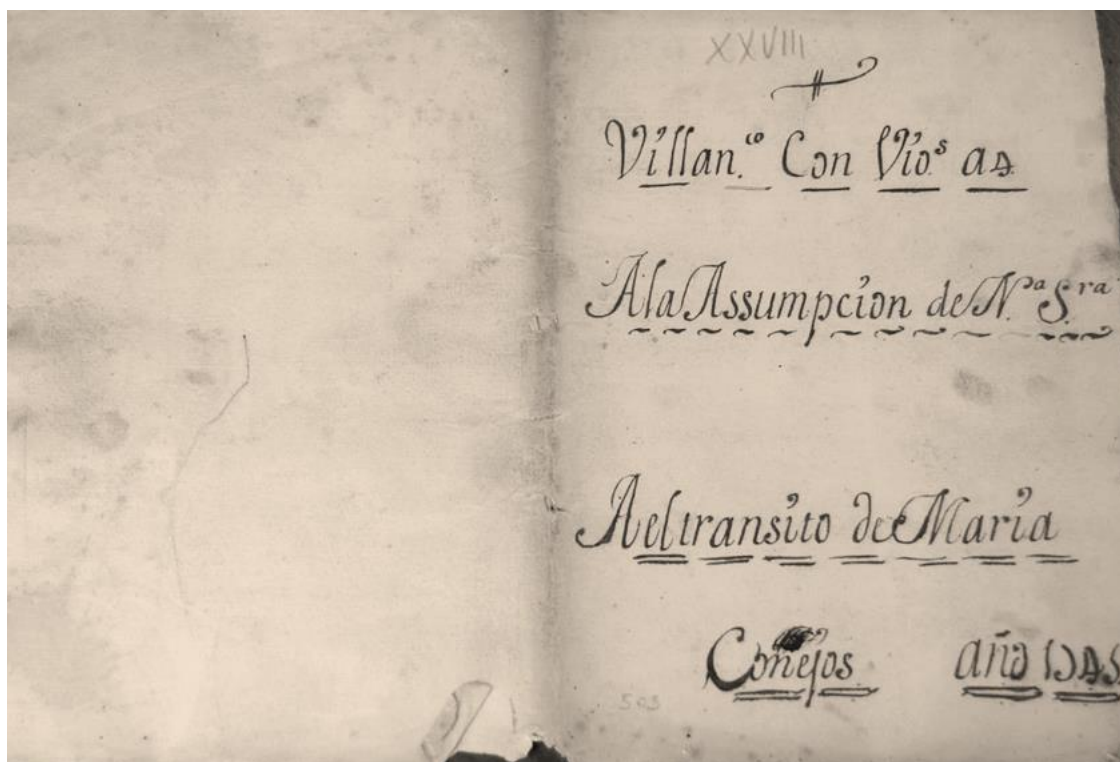 XXVIII
Villan.co Con Vio.s a 4
A la Assumpcion de N.a S.ra
A el transito de Maria
Conejos año
503